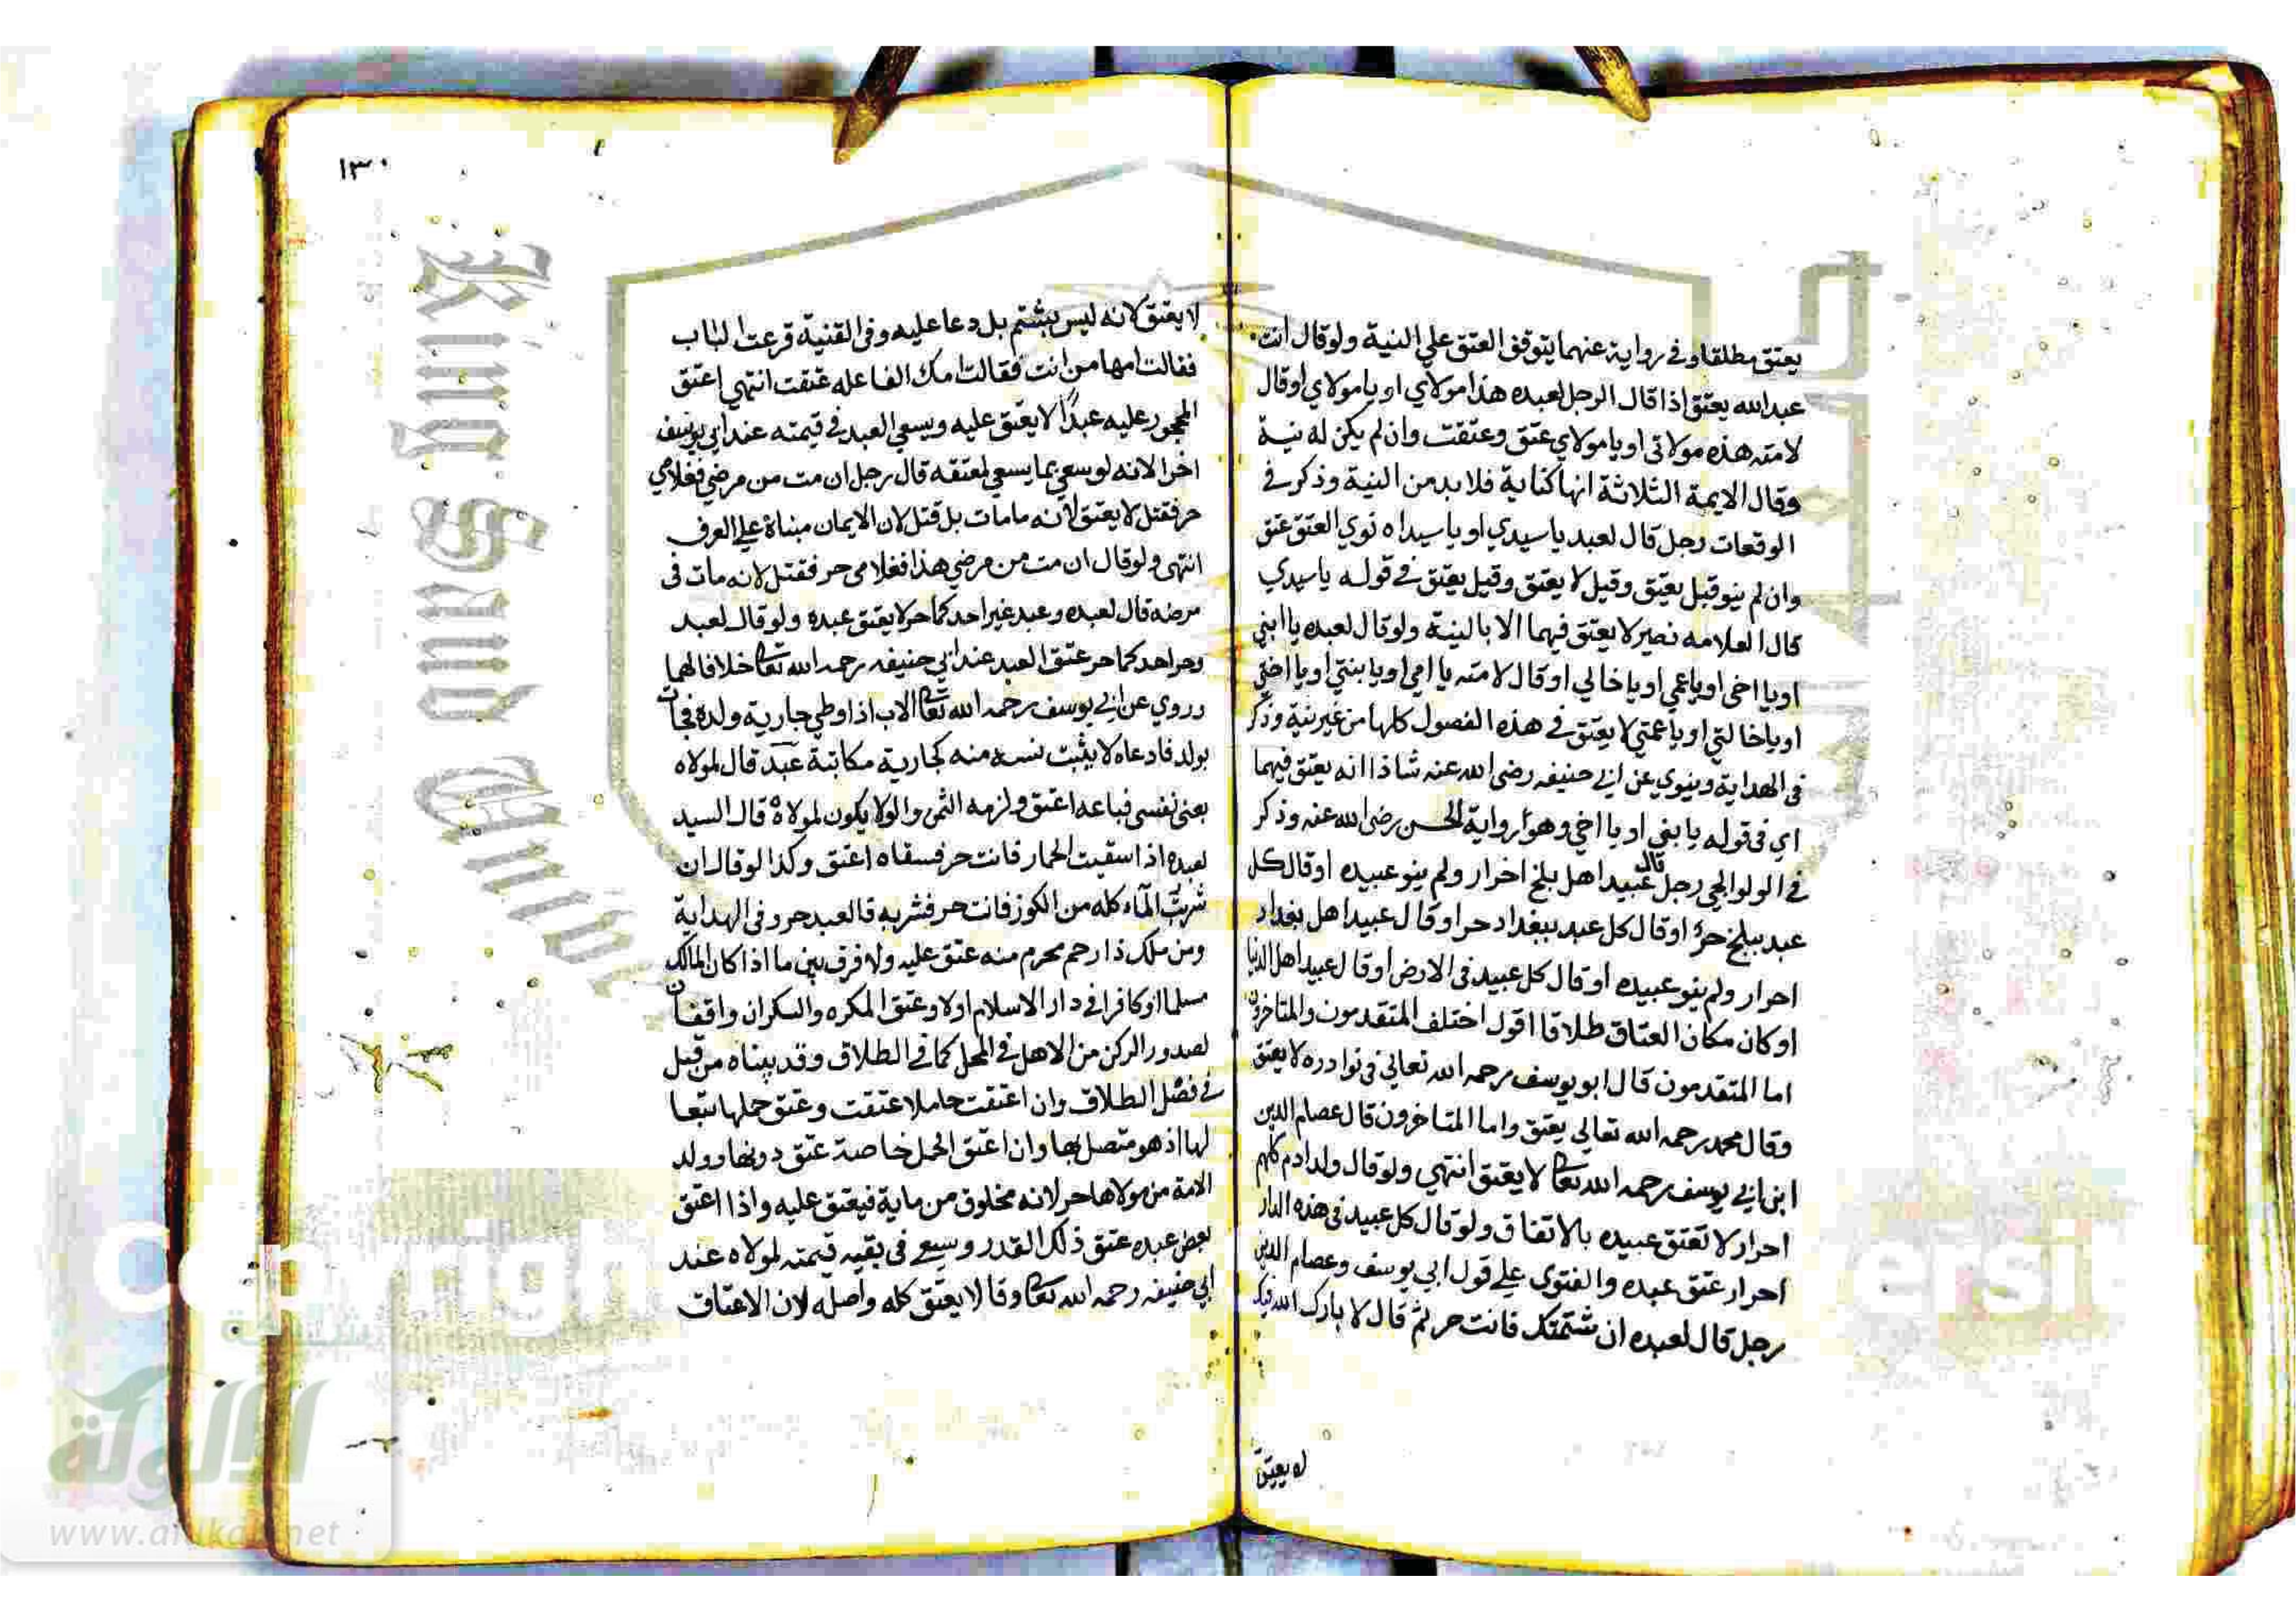 يعتق مطلقا وفي رواية عنهما يتوقف العتق علي النية ولو قال انت
عبد الله يعتق اذا قال الرجل لعبده هذا مولاي او يا مولاي او قال
لامته هذه مولاتي او يا مولاي عتق وعتقت وان لم يكن له نية
وقال الايمة الثلاثة انها كناية فلا بد من النية وذكر في
الوقعات رجل قال لعبد يا سيدي او يا سيداه نوي العتق عتق
وان لم ينو قيل يعتق وقيل لا يعتق وقيل يعتق في قوله يا سيدي
قال العلامه نصير لا يعتق فيهما الا بالنية ولو قال لعبده يا ابني
او يا اخي او يا عمي او يا خالي او قال لامته يا امي او يا بنتي او يا اختي
او يا خالتي او يا عمتي لا يعتق في هذه الفصول كلها من غير نية وذكر
في الهداية ويروي عن ابي حنيفه رضي الله عنه شاذا انه يعتق فيهما
اي في قوله يا بني او يا اخي وهو رواية الحسن رضي الله عنه وذكر
في الولوالجي رجل قال عبيد اهل بلخ احرار ولم ينو عبيده او قال كل
عبد ببلخ حر او قال كل عبد ببغداد حر او قال عبيد اهل بغداد
احرار ولم ينو عبيده او قال كل عبيد في الارض او قال عبيد اهل الدنيا
او كان مكان العتاق طلاقا اقول اختلف المتقدمون والمتاخرون
اما المتقدمون قال ابو يوسف رحمه الله تعالي في نوادره لا يعتق
وقال محمد رحمه الله تعالي يعتق واما المتاخرون قال عصام الدين
ابن ابي يوسف رحمه الله تعا لا يعتق انتهي ولو قال ولد ادم كلهم
احرار لا تعتق عبيده بالاتفاق ولو قال كل عبيد في هذه الدار
احرار عتق عبده والفتوي علي قول ابي يوسف وعصام الدين
رجل قال لعبده ان شتمتك فانت حر ثم قال لا بارك الله فيك
لا يعتق
١٣٠
لا يعتق لانه ليس بشتم بل دعا عليه وفي القنية قرعت الباب
فقالت امها من انت فقالت امك الفاعله عتقت انتهي اعتق
المحجور عليه عبدا لا يعتق عليه ويسعي العبد في قيمته عند ابي يوسف
اخرا لانه لو سعي بما يسعي لمعتقه قال رجل ان مت من مرضي فغلامي
حر فقتل لا يعتق لانه ما مات بل قتل لان الايمان مبناة علي العرف
انتهي ولو قال ان مت من مرضي هذا فغلامي حر فقتل لانه مات في
مرضه قال لعبده وعبد غير احدكما حر لا يعتق عبده ولو قال لعبد
وحر احدكما حر عتق العبد عند ابي حنيفه رحمه الله تعا خلافا لهما
وروي عن ابي يوسف رحمه الله تعا الاب اذا وطي جارية ولده فجات
بولد فادعاه لا يثبت نسبه منه كجارية مكاتبة عبد قال لمولاه
بعني نفسي فباعه اعتق ولزمه الثمن والولا يكون لمولاه قال السيد
لعبده اذا سقيت الحمار فانت حر فسقاه اعتق وكذا لو قال ان
شربت الماء كله من الكوز فانت حر فشربه فالعبد حر وفي الهداية
ومن ملك ذا رحم محرم منه عتق عليه ولا فرق بين ما اذا كان المالك
مسلما او كافرا في دار الاسلام اولا وعتق المكره والسكران واقفان
لصدور الركن من الاهل في المحل كما في الطلاق وقد بيناه من قبل
في فصل الطلاق وان اعتقت حاملا عتقت وعتق حملها تبعا
لها اذ هو متصل بها وان اعتق الحمل خاصة عتق دونها وولد
الامة من مولاها حر لانه مخلوق من مايه فيعتق عليه واذا اعتق
بعض عبده عتق ذلك القدر وسعي في بقيه قيمته لمولاه عند
ابي حنيفه رحمه الله تعا وقالا يعتق كله واصله لان الاعتاق
King Saud
Copyrigh
ersi
شبكة
الألوكة
www.alukah.net